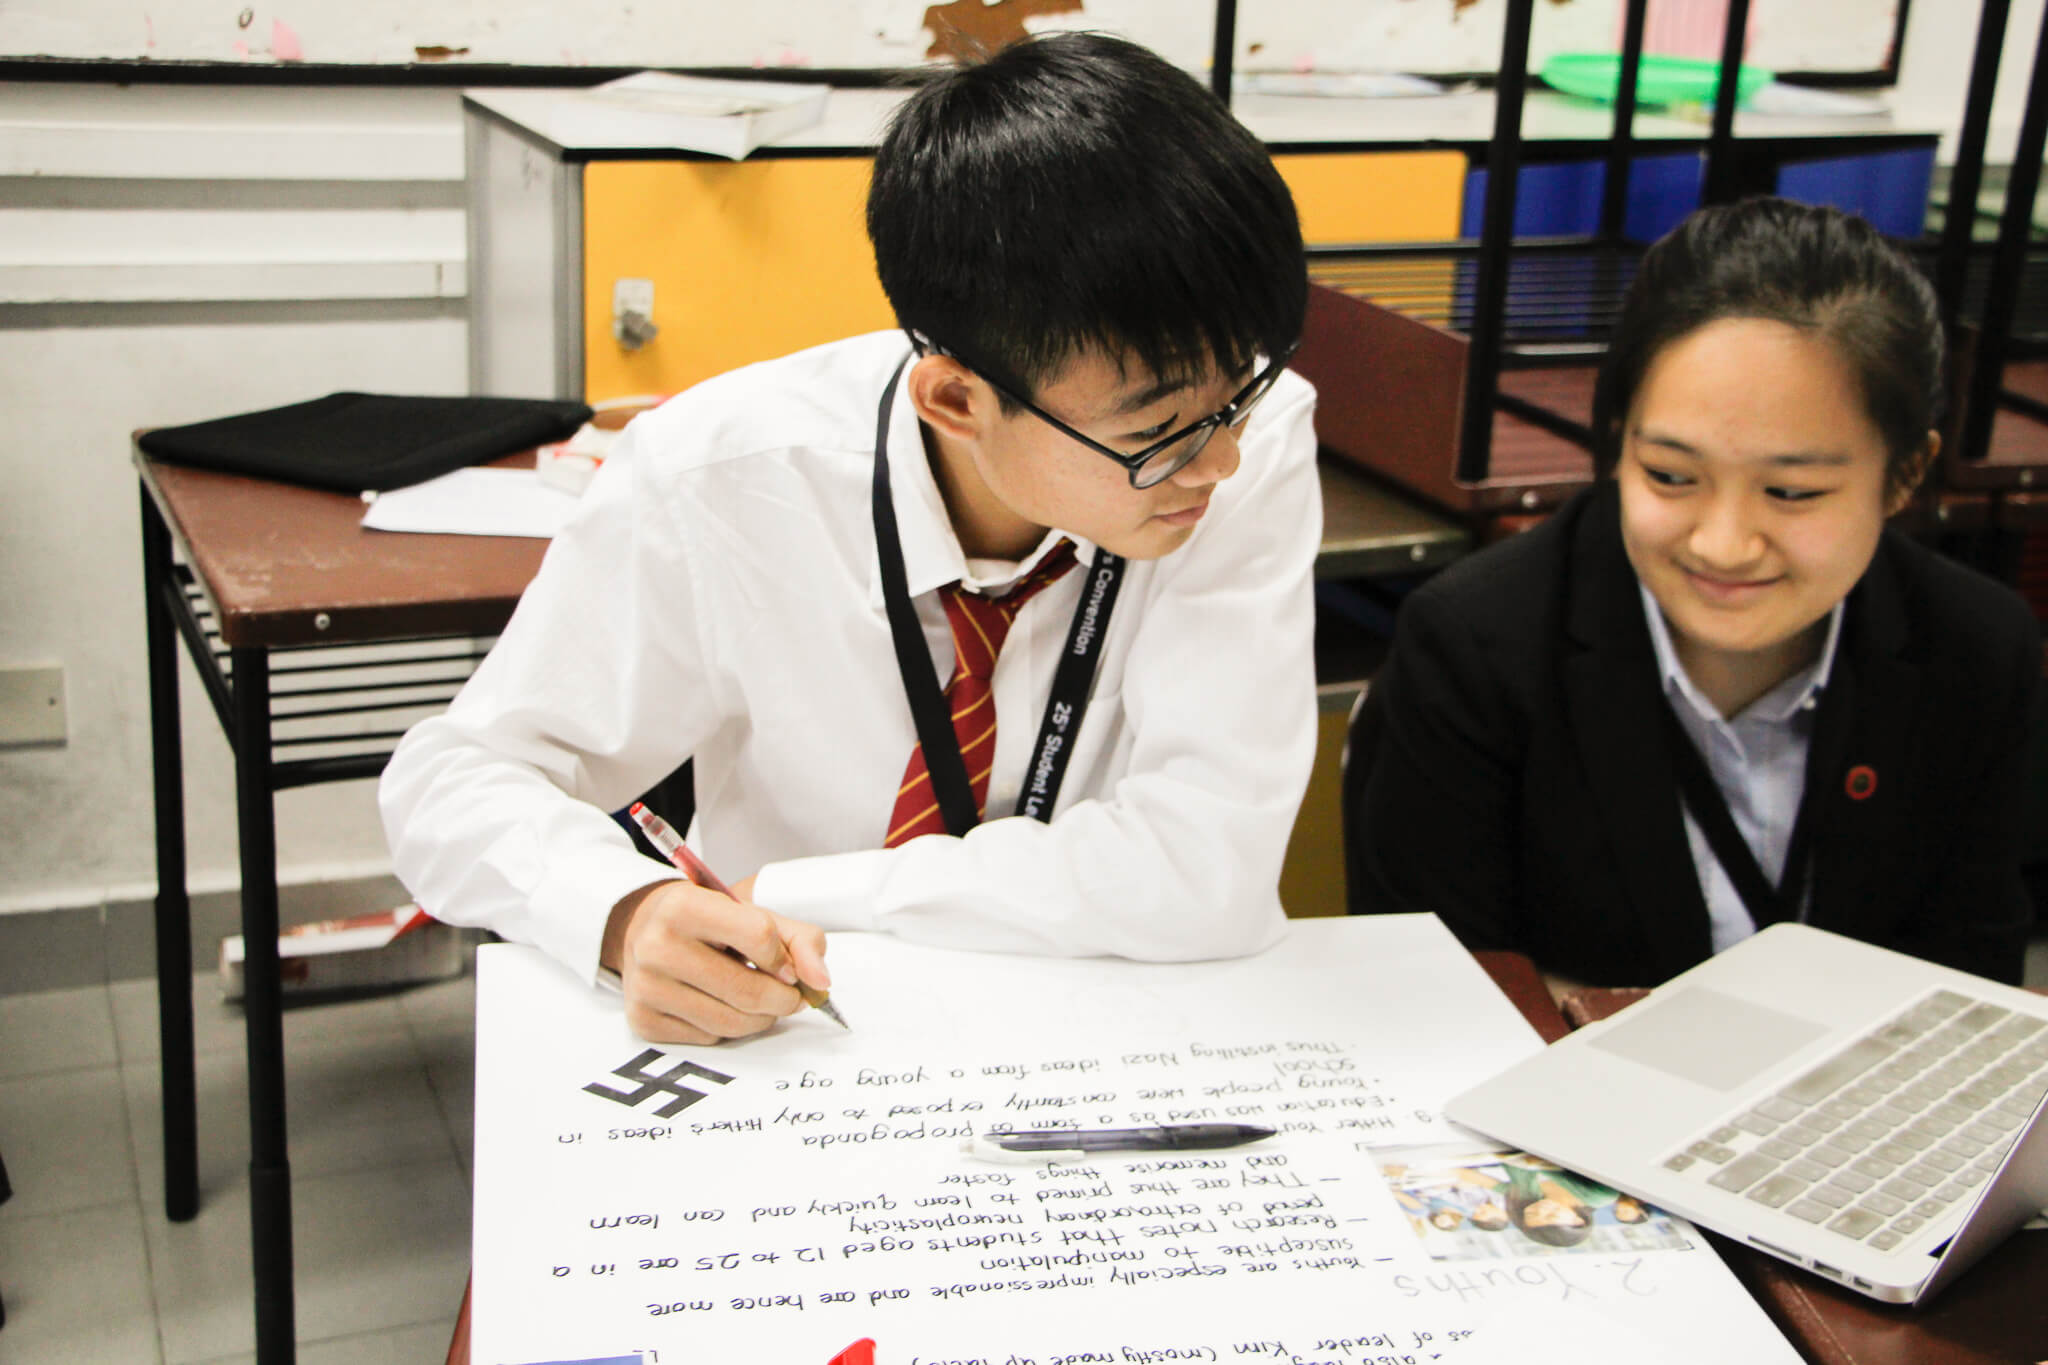 s Convention
25th Student Le
also
as of leader Kim (mostly made up
2. Youths
– Youths are especially impressionable and are hence more
susceptible to manipulation
– Research notes that students aged 12 to 25 are in a
period of extraordinary neuroplasticity
– They are thus primed to learn quickly and can learn
and memorise things faster
Hitler Youth
• Education was used as a form of propaganda
• Young people were constantly exposed to only Hitler's ideas in
school
• Thus instilling Nazi ideas from a young age